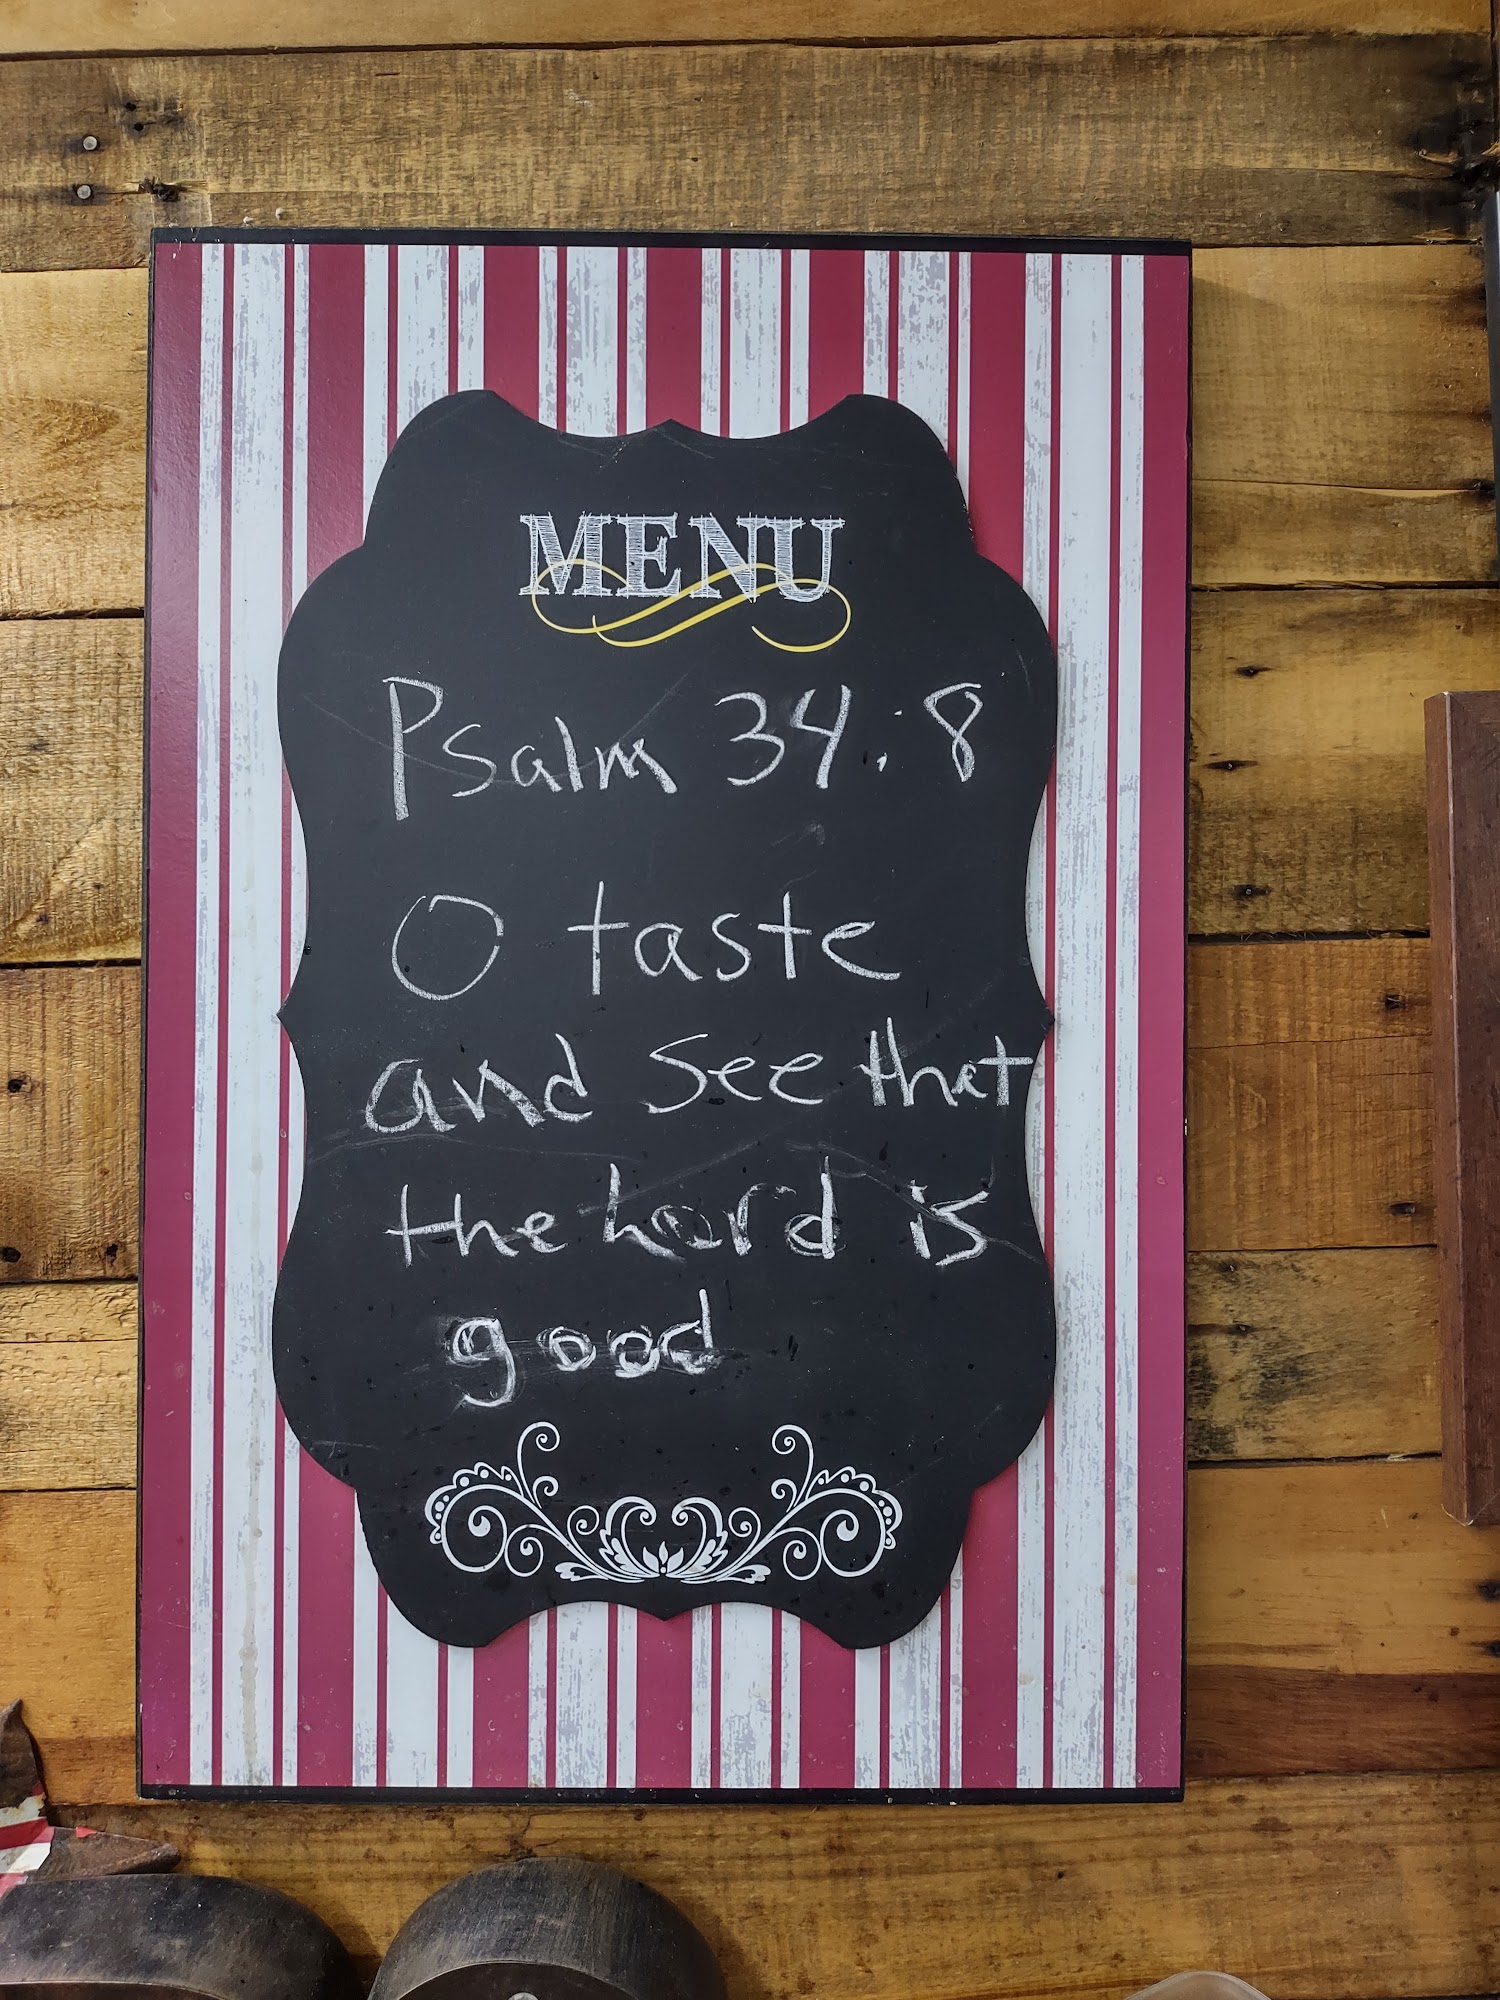 MENU
Psalm 34:8
O taste
and see that
the Lord is
good